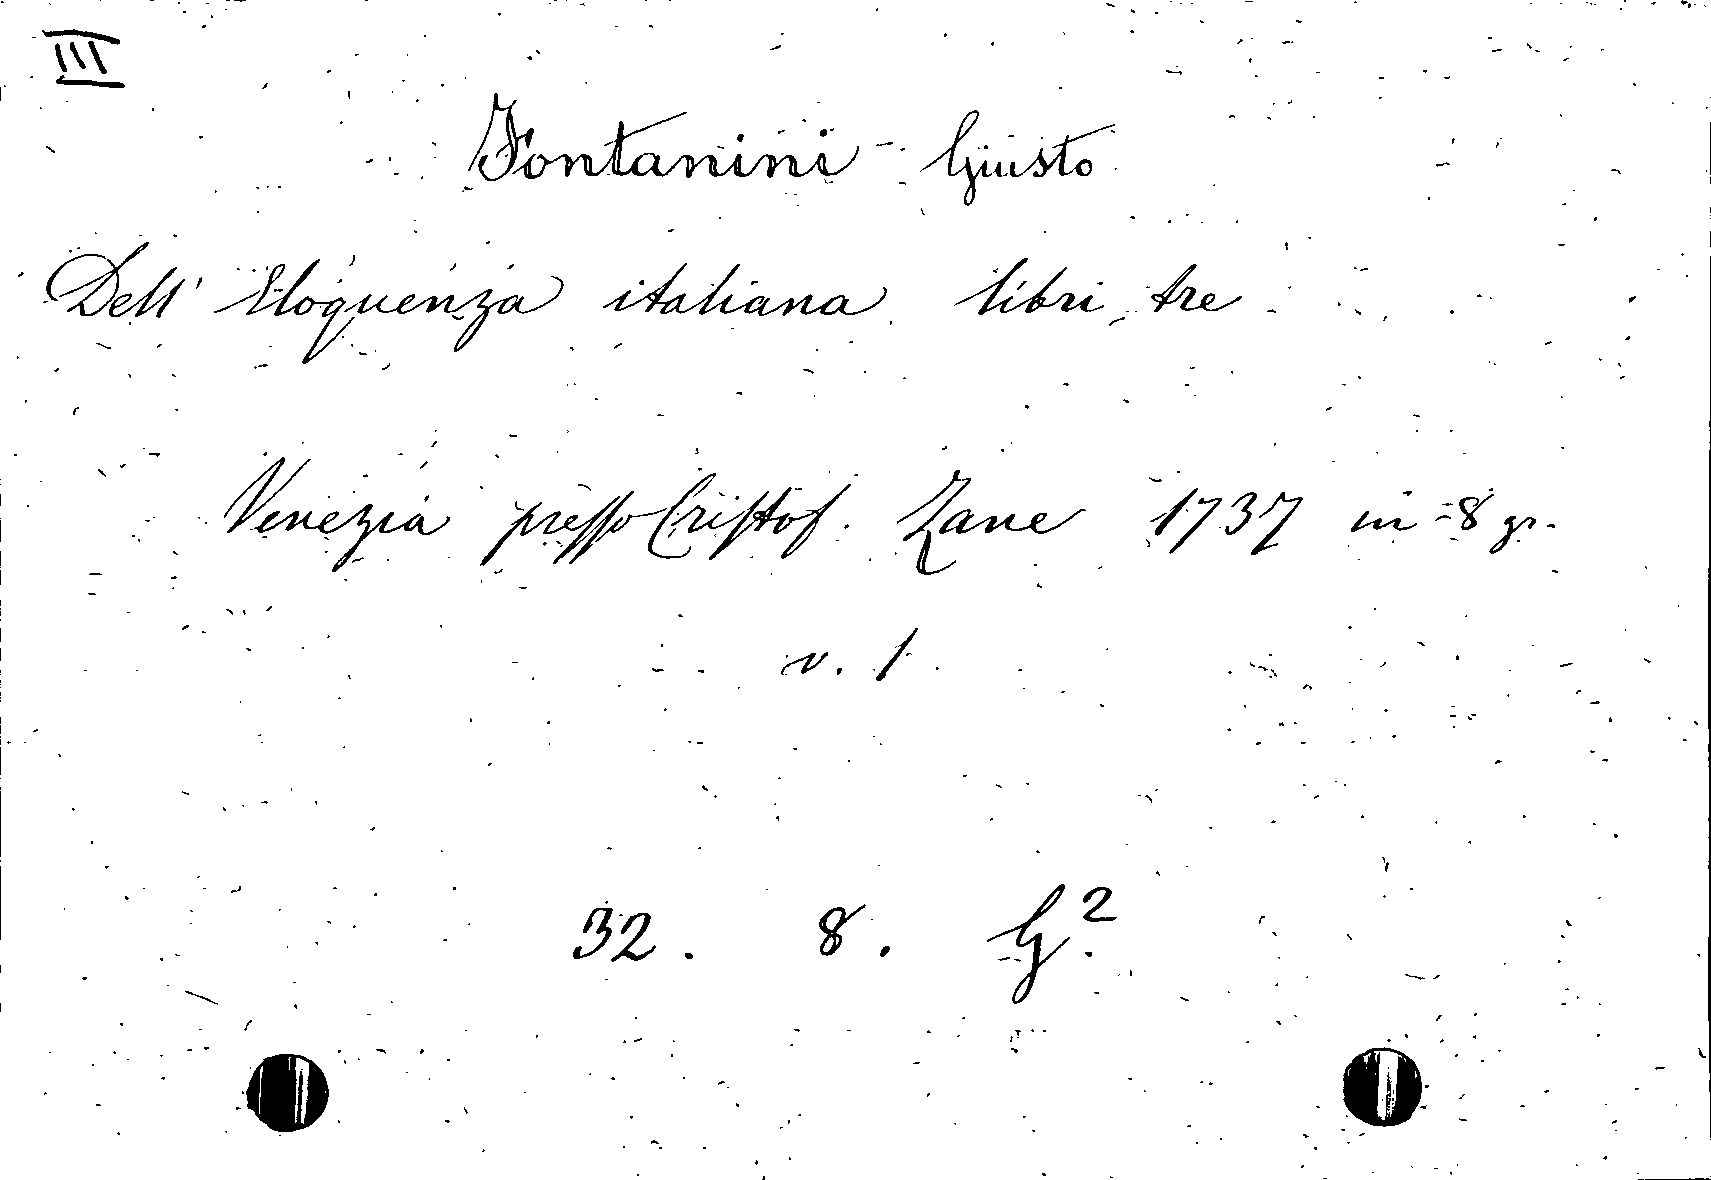 III
Fontanini Giusto
Dell' Eloquenza italiana libri tre
Venezia presso Cristof. Zane 1737 in-8 gr.
v. 1
32. 8. G².